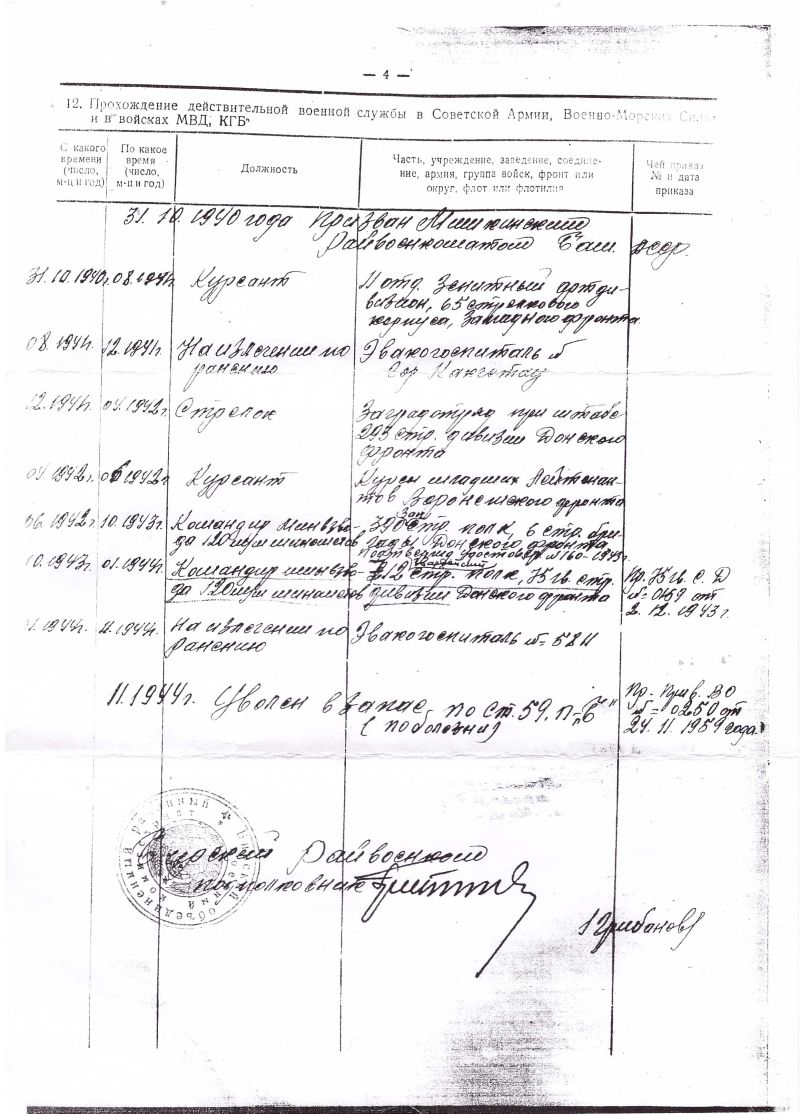 — 4 —
12. Прохождение действительной военной службы в Советской Армии, Военно-Морских Силах
и в войсках МВД, КГБ
С какого времени (число, м-ц и год)
По какое время (число, м-ц и год)
Должность
Часть, учреждение, заведение, соединение, армия, группа войск, фронт или округ, флот или флотилия
Чей приказ № и дата приказа
31. 10. 1940 года призван Мишкинским
райвоенкоматом Баш. АССР.
31.10.1940г. 08.1941г. Курсант
отд. Зенитный артди-
визион, 65 стрелкового
корпуса, Западного фронта
08.1941г. 12.1941г. На излечении по Эвакогоспиталь №
ранению гор
12.1941г. 04.1942г. Стрелок Заградотряд при штабе
293 стр. дивизии Донского
фронта
04.1942г. 06.1942г. Курсант Курсы младших лейтенан-
тов Воронежского фронта
Зап.
06.1942г. 10.1943г. Командир минвзво- стр. полк, 6 стр. бри-
да 120 мм минометов гады Донского фронта
10.1943г. 01.1944г. Командир минвзво- 212 гвардейский стр. полк, 75 гв. стр. Пр. 75 гв. С. Д
да 120 мм минометов дивизии Донского фронта № 0159 от
2. 12. 1943г.
1.1944г. 11.1944г. На излечении по Эвакогоспиталь № 5811
ранению
11.1944г. Уволен в запас по ст. 59, п. „б"
(по болезни)
Пр. Прив. ВО
№ 0250 от
24. 11. 1959 года.
Бирский райвоенком
подполковник
/Грибанов/
Бирский объединенный районный военный комиссариат